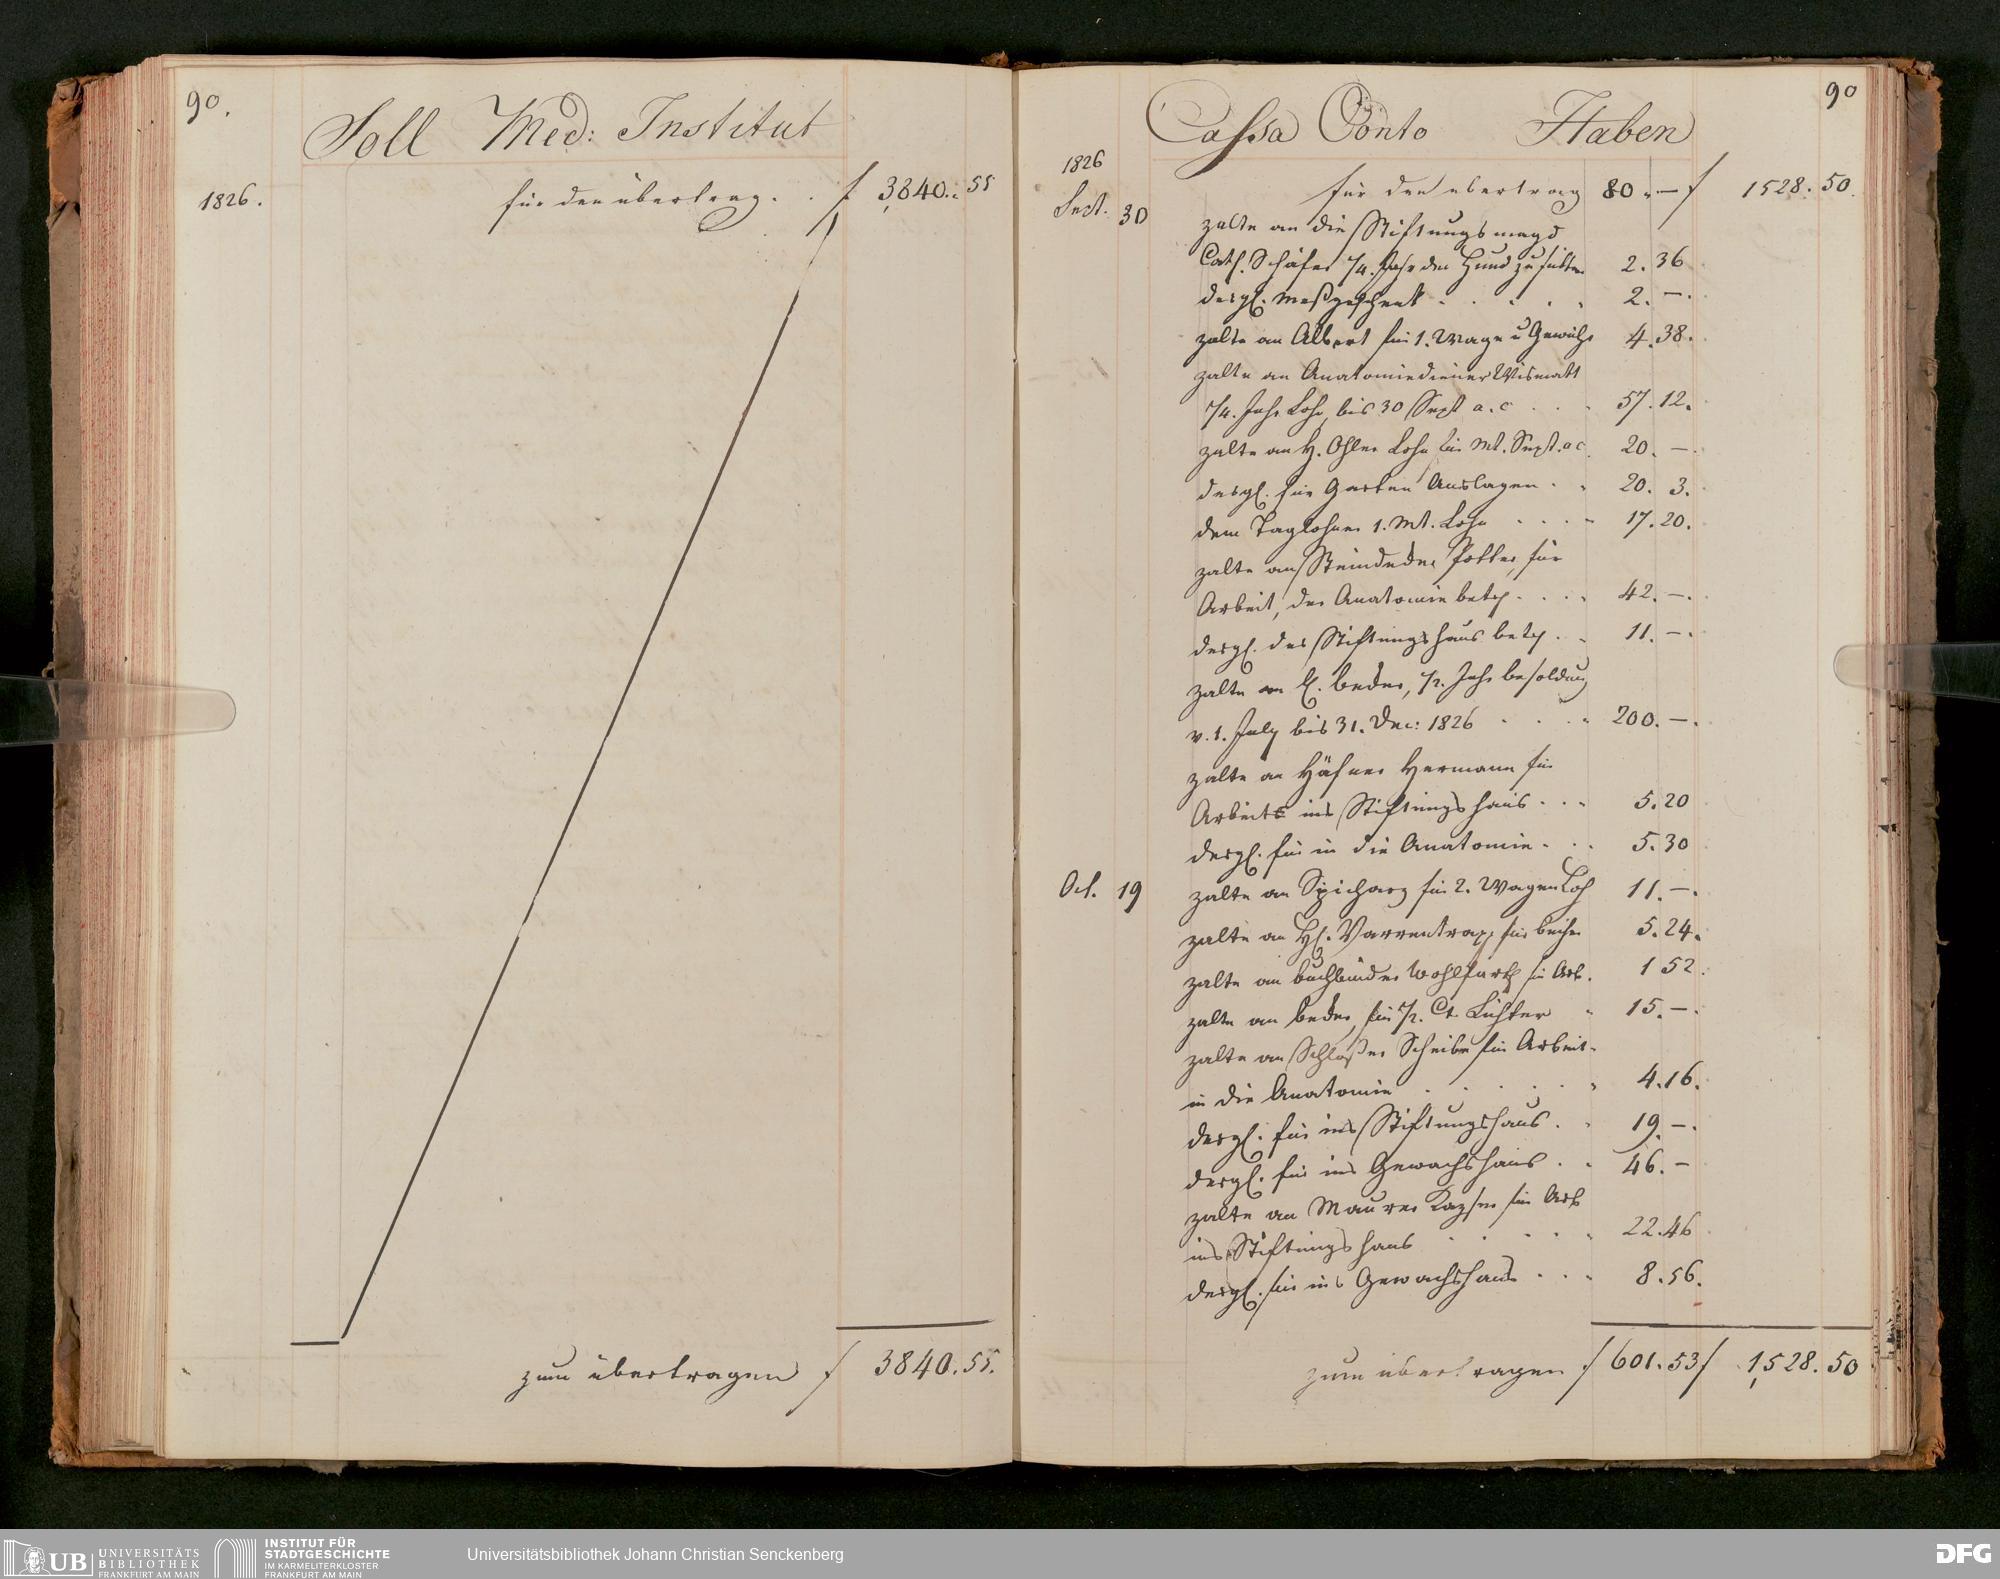 90.
Soll Med: Institut
1826. für den übertrag . . f 3,840.. 55
zum übertragen f 3840. 55.
90
Cassa Conto Haben
1826
für den übertrag 80 . — f 1528. 50.
Sept. 30 zalte an die Stiftungsmagd
Cath. Schäfer 1/4. Jahr den Hund zu füttern 2. 36
desgl. Meßgeschenk . . . . . 2. —.
zalte an Albert für 1. Wage u Gewicht 4. 38.
zalte an Anatomiediener Wismatt
1/4. Jahr Lohn, bis 30 Sept a. c . . . 57. 12.
zalte an H. Ohler Lohn für Mt. Sept. a c. 20. —.
desgl. für Garten Auslagen . . 20. 3.
dem Taglohner 1. Mt. Lohn . . . . 17. 20.
zalte an Steindeder Potter, für
Arbeit, der Anatomie betr. . . . . 42. —.
desgl. des Stiftungshaus betr. . . 11. —.
zalte an beder, 1/2. Jahr besoldung
v. 1. July bis 31. Dec: 1826 . . . . 200. —.
zalte an Häfner Hermann für
Arbeit ins Stiftungshaus . . . 5. 20
desgl. für in die Anatomie . . . 5. 30
Oct. 19 zalte an Spicharz für 2. Wagen Loh 11. —.
zalte an H. Varrentrapp für bücher 5. 24.
zalte an buchbinder Wohlfarth für Arb. 1 52.
zalte an beder, für 1/2. Ct. Lichter . 15. —.
zalte an Schloßer Scheibe für Arbeit
in die Anatomie . . . . . . 4. 16.
desgl. für ins Stiftungshaus . . 19. —.
desgl. für ins Gewachshaus . . 46. —
zalte an Maurer Kayser für Arb
ins Stiftungshaus . . . . . 22. 46
desgl. für ins Gewachshaus . . . 8. 56.
zum übertragen f 601. 53 f 1,528. 50
UB UNIVERSITÄTS
BIBLIOTHEK
FRANKFURT AM MAIN
INSTITUT FÜR
STADTGESCHICHTE
IM KARMELITERKLOSTER
FRANKFURT AM MAIN
Universitätsbibliothek Johann Christian Senckenberg
DFG